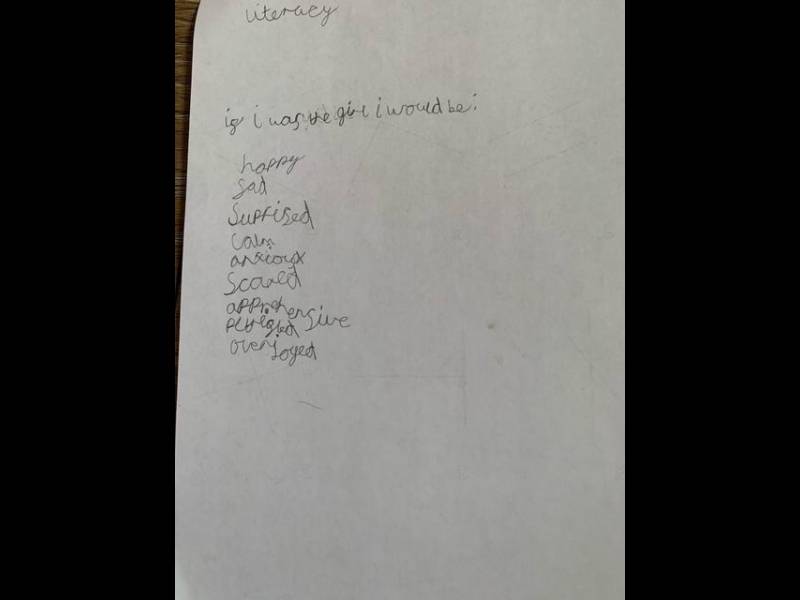 Literacy
if i was the girl i would be:
happy
sad
Suprised
calm
anxious
Scared
apprehensive
overjoyed